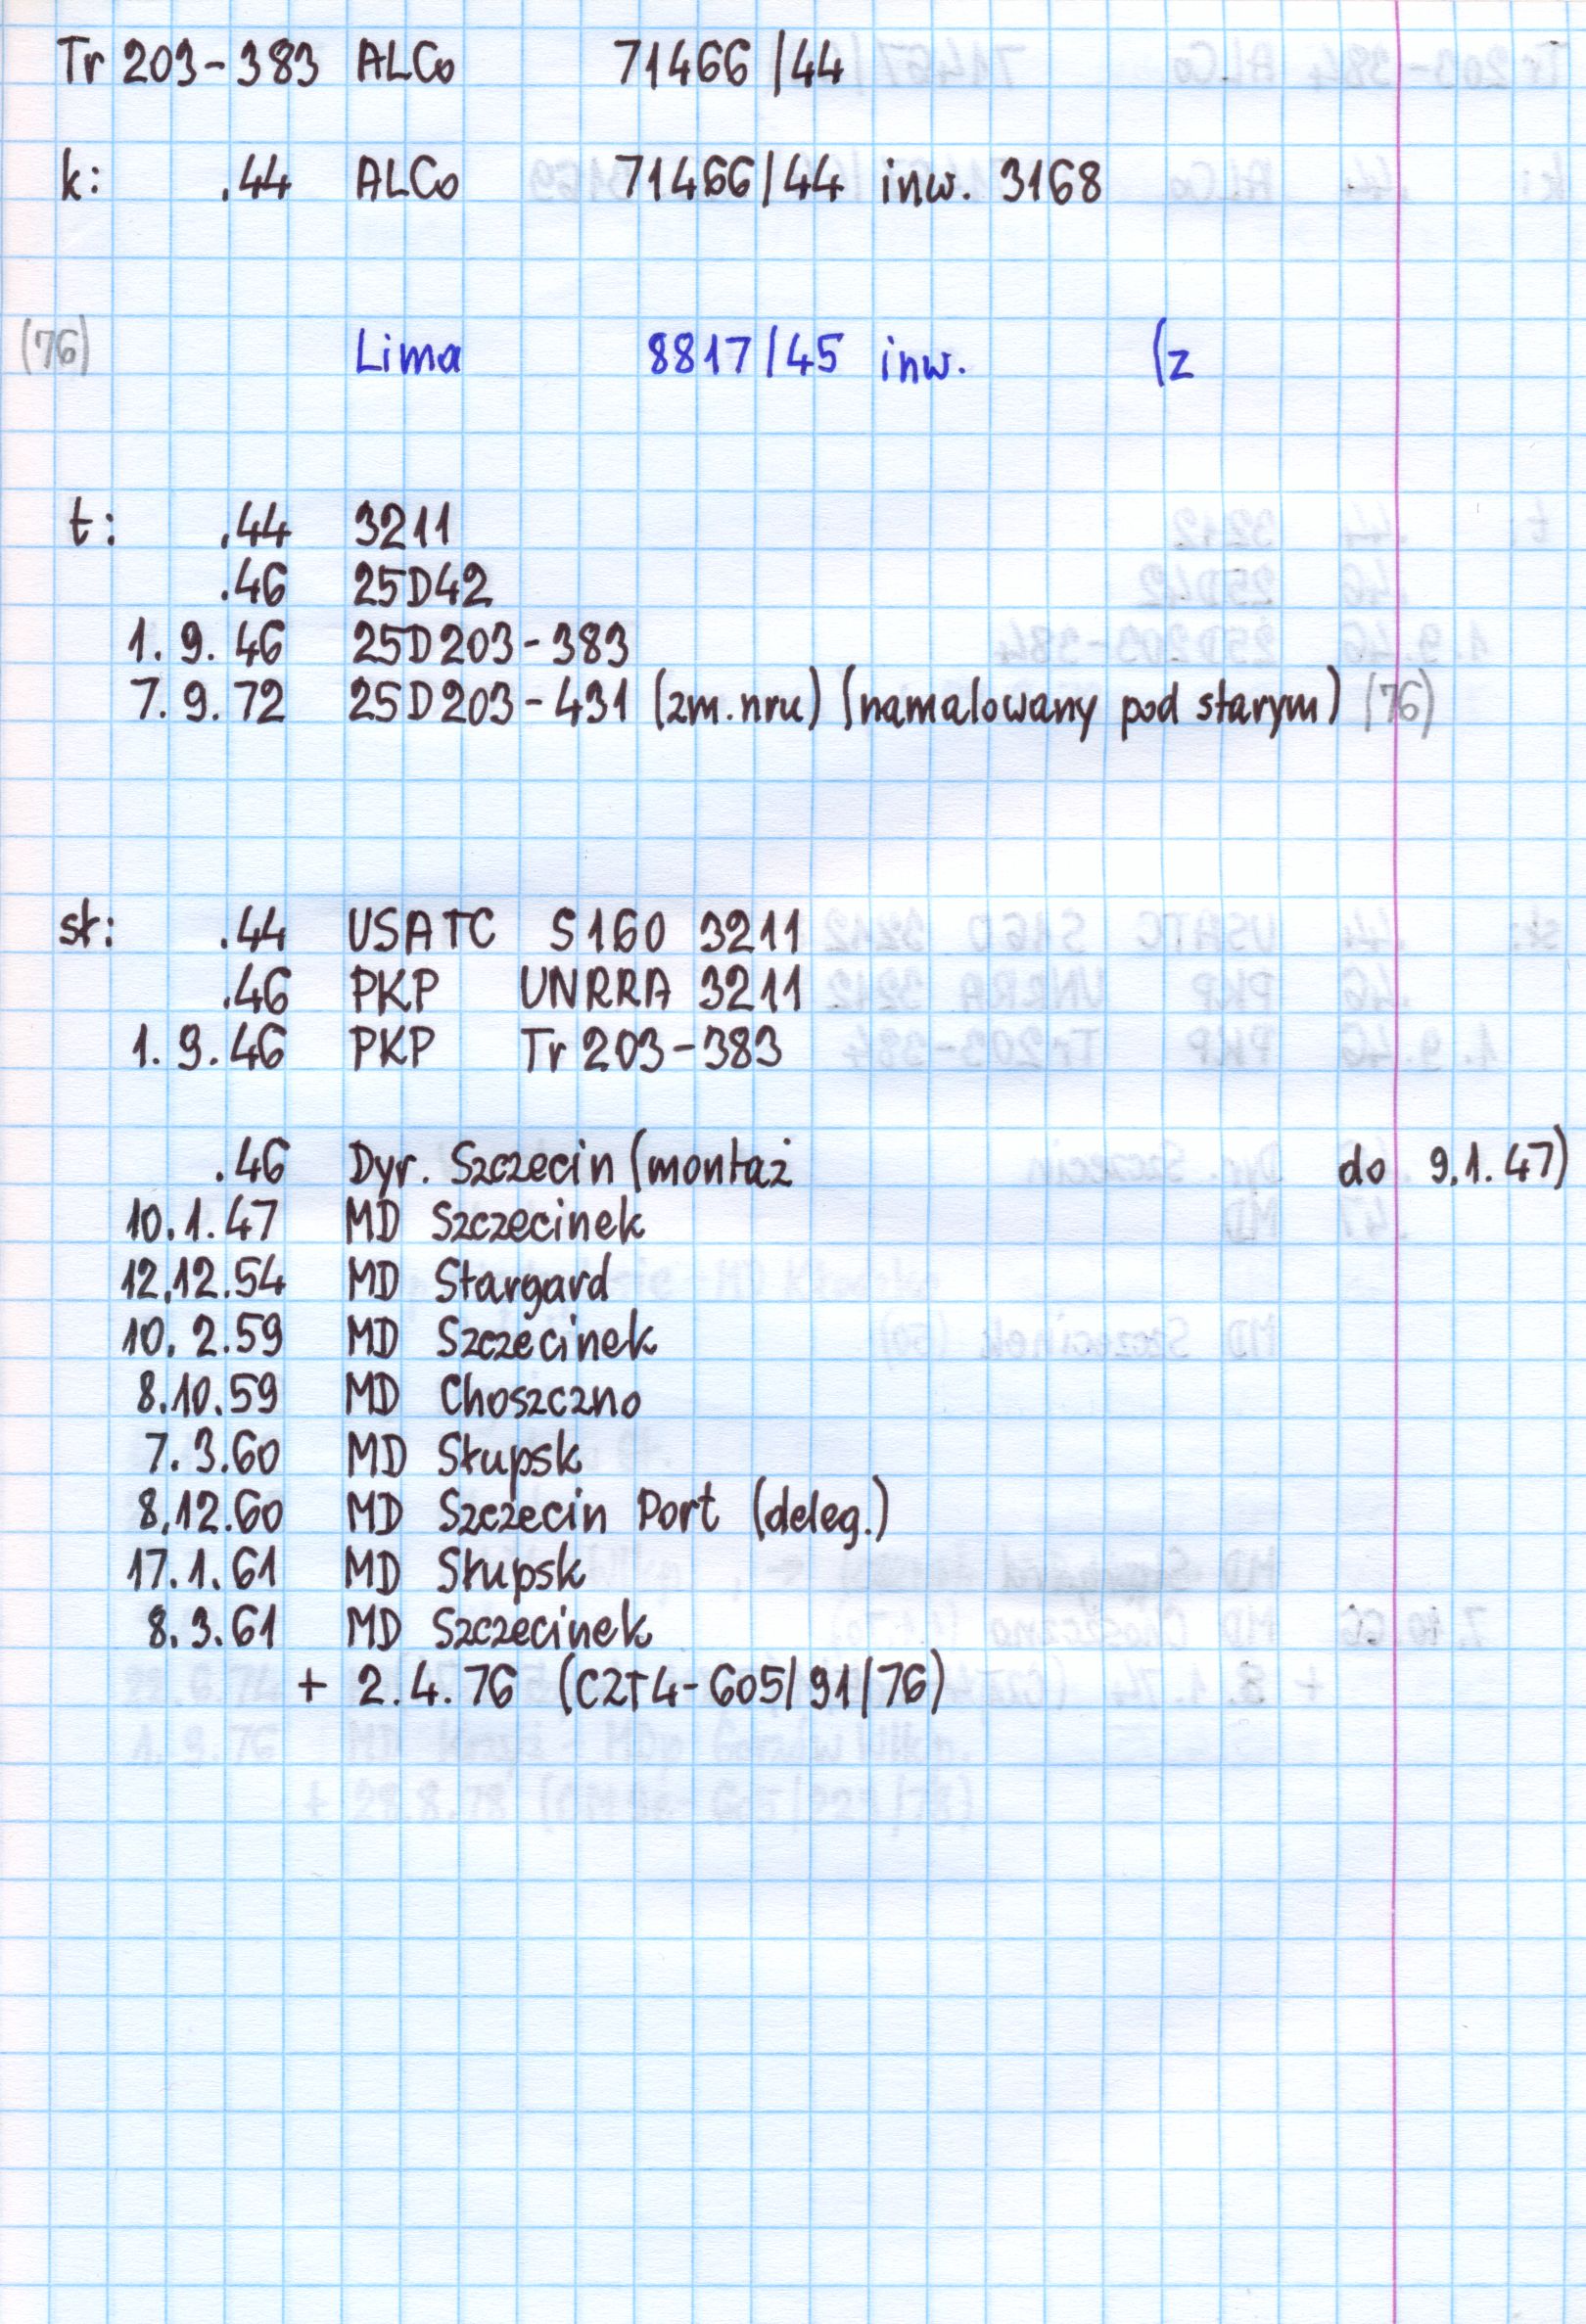 Tr 203-383 ALCo 71466/44
k: .44 ALCo 71466/44 inw. 3168
(76) Lima 8817/45 inw. (z
t: .44 3211
.46 25D42
1.9.46 25D203-383
7.9.72 25D203-431 (zm.nru) (namalowany pod starym) (76)
sł: .44 USATC S160 3211
.46 PKP UNRRA 3211
1.9.46 PKP Tr 203-383
.46 Dyr. Szczecin (montaż do 9.1.47)
10.1.47 MD Szczecinek
12.12.54 MD Stargard
10.2.59 MD Szczecinek
8.10.59 MD Choszczno
7.3.60 MD Słupsk
8.12.60 MD Szczecin Port (deleg.)
17.1.61 MD Słupsk
8.3.61 MD Szczecinek
+ 2.4.76 (CZT4-605/91/76)